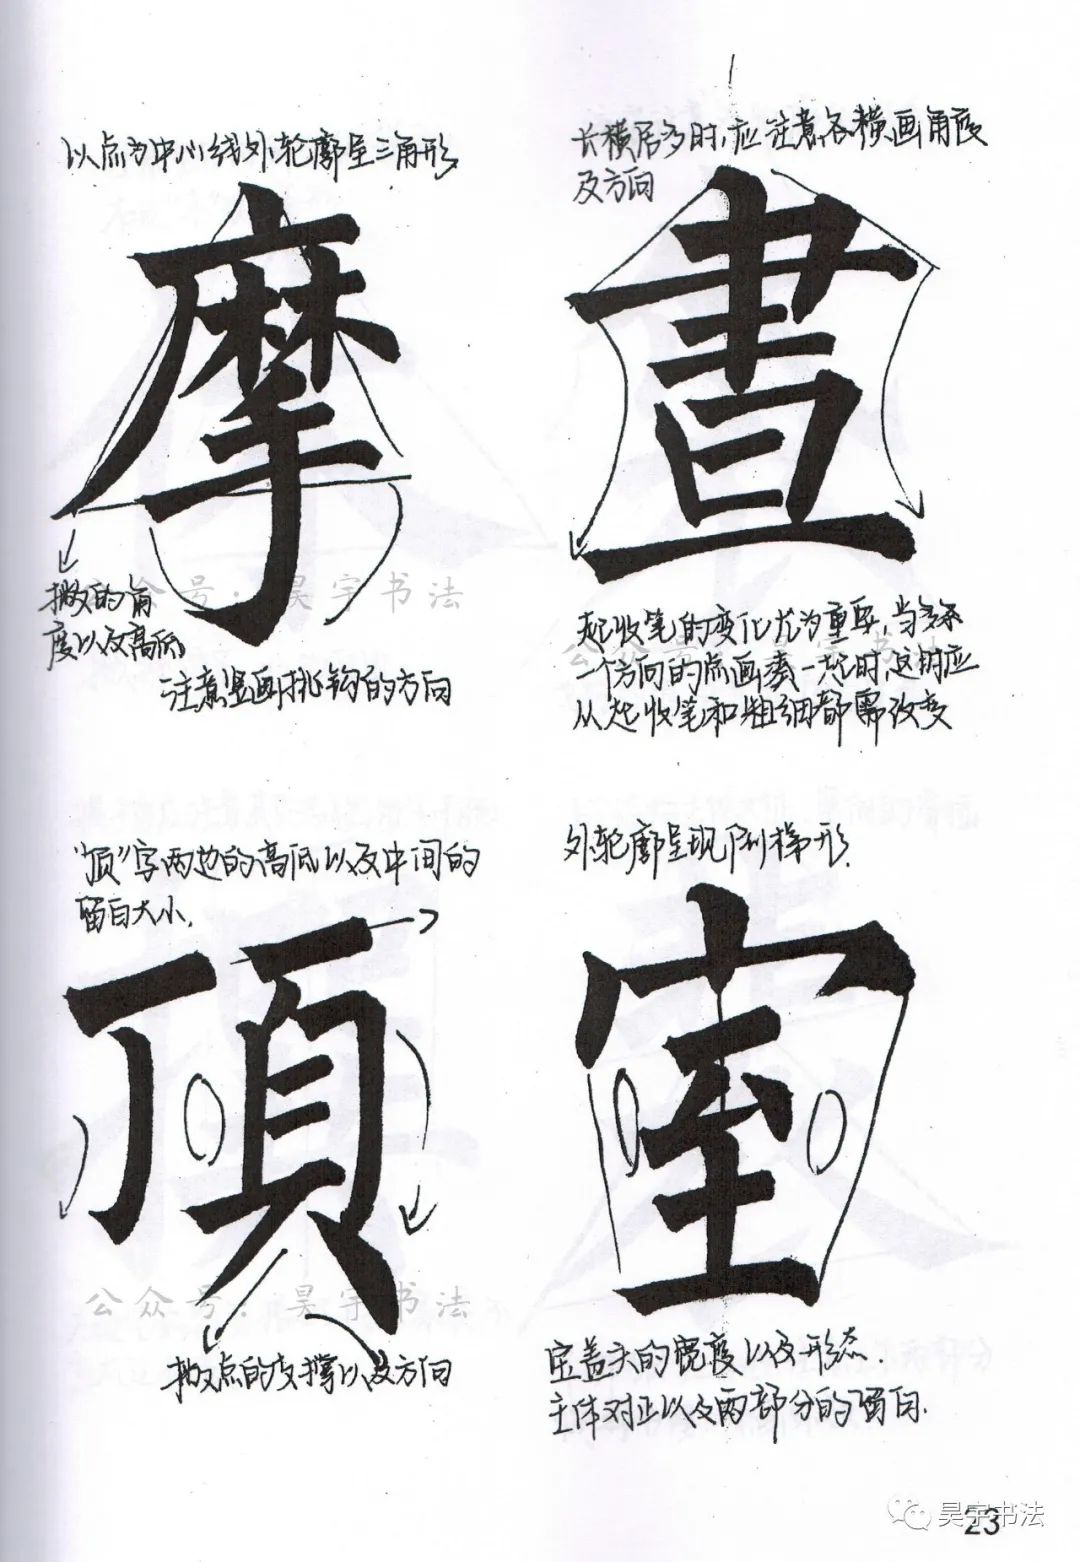 以点为中心线外轮廓呈三角形
摩
撇的角
度以及高低
注意竖画挑钩的方向
长横居多时,应注意各横画角度
及方向
晝
起收笔的变化尤为重要,当多条
一个方向的点画凑一起时,这时应
从起收笔和粗细都需改变
公众号·昊宇书法
公众号·昊宇书法
"顶"字两边的高低以及中间的
留白大小.
頂
撇点的支撑以及方向
公众号·昊宇书法
外轮廓呈现倒梯形.
室
宝盖头的宽度以及形态.
主体对正以及两部分的留白.
昊宇书法
23